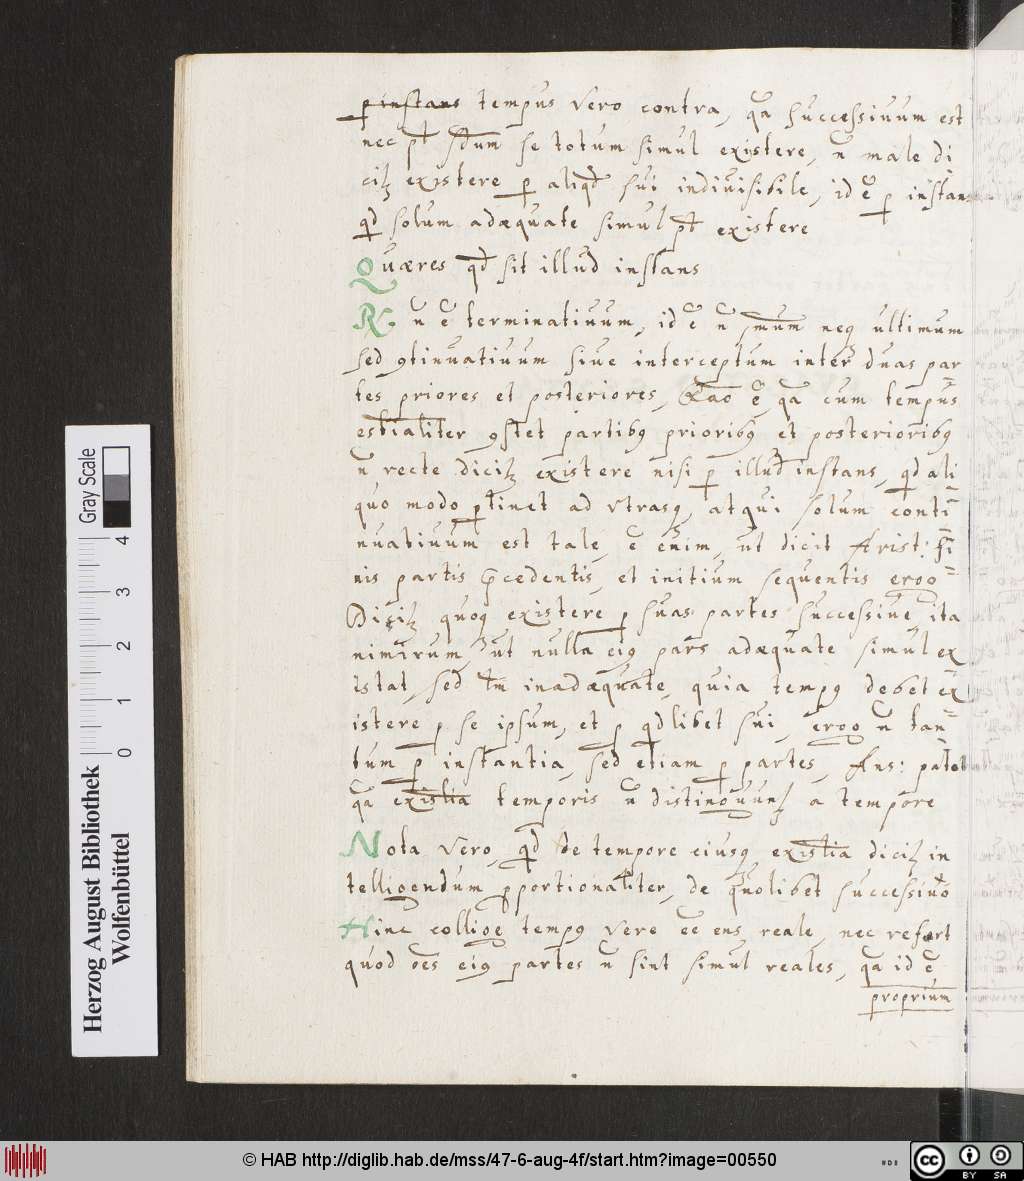 p instans tempus vero contra, qa successiuum est
nec pt scdum se totum simul existere, n male di
citz existere p aliqd sui indiuisibile, id e p instans
qd solum adæquate simul pt existere
Quæres qd sit illud instans
Rx. n e terminatiuum, id e n pmum neq ultimum
sed 9tinuatiuum siue interceptum inter duas par
tes priores et posteriores, Rao e, qa cum tempus
estialiter 9stet partib9 priorib9 et posteriorib9
n recte dicitz existere nisi p illud instans, qd ali=
quo modo ptinet ad vtrasq, atqui solum conti=
nuatiuum est tale, e enim, ut dicit Arist: fi=
nis partis pcedentis, et initium sequentis ergo
Dicitz quoq existere p suas partes successiue, ita
nimirum, ut nulla ei9 pars adæquate simul ex
istat, sed tm inadæquate, quia temp9 debet ex=
istere p se ipsum, et p qdlibet sui, ergo n tan=
tum p instantia, sed etiam p partes, Ans: patet
qa exisția temporis n distinguuntz a tempore
Nota vero, qd de tempore eiusq existia dicitz in
telligendum pportionaliter, de quolibet successiuo
Hinc collige temp9 vere ee ens reale, nec refert
quod oes ei9 partes n sint simul reales, qa id e
proprium
Herzog August Bibliothek
Wolfenbüttel
Gray Scale
0 1 2 3 4
© HAB http://diglib.hab.de/mss/47-6-aug-4f/start.htm?image=00550
cc BY SA